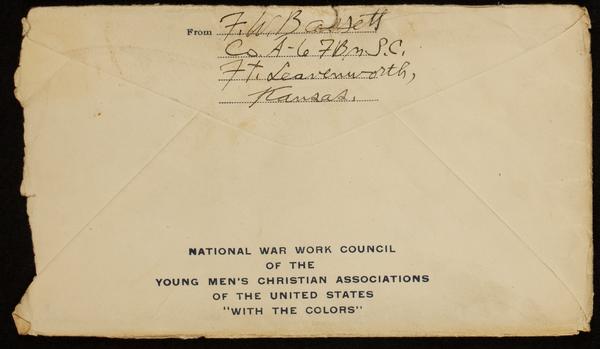 From F. W. Bassett
Co. A-6 F Bn S.C.
Ft. Leavenworth,
Kansas.
NATIONAL WAR WORK COUNCIL
OF THE
YOUNG MEN'S CHRISTIAN ASSOCIATIONS
OF THE UNITED STATES
"WITH THE COLORS"